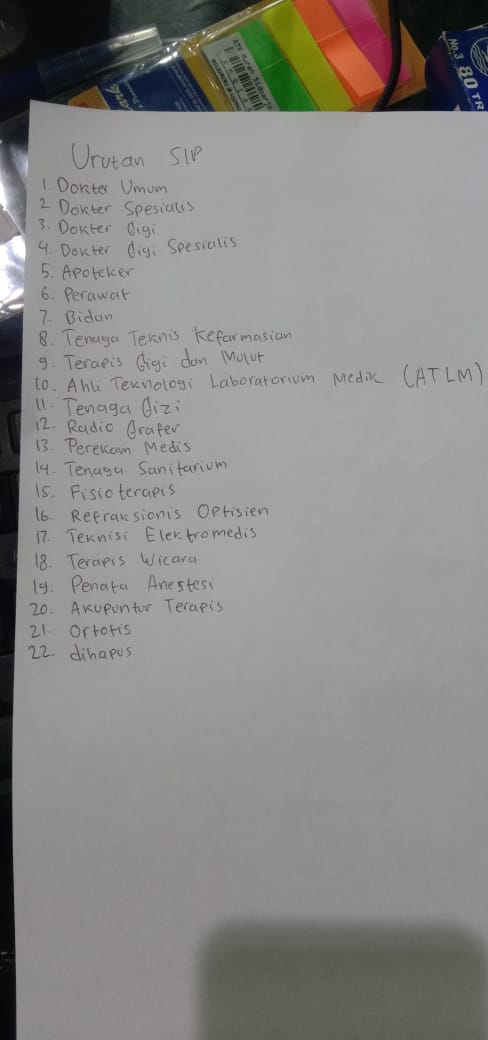 No.3
80 TR
Urutan SIP
1. Dokter Umum
2 Dokter Spesialis
3. Dokter Gigi
4. Dokter Gigi Spesialis
5. Apoteker
6. Perawat
7. Bidan
8. Tenaga Teknis Kefarmasian
9. Terapis Gigi dan Mulut
10. Ahli Teknologi Laboratorium Medik (ATLM)
11. Tenaga Gizi
12. Radio Grafer
13. Perekam Medis
14. Tenaga Sanitarium
15. Fisioterapis
16. Refraksionis Optisien
17. Teknisi Elektromedis
18. Terapis Wicara
19. Penata Anestesi
20. Akupuntur Terapis
21. Ortotis
22. dihapus